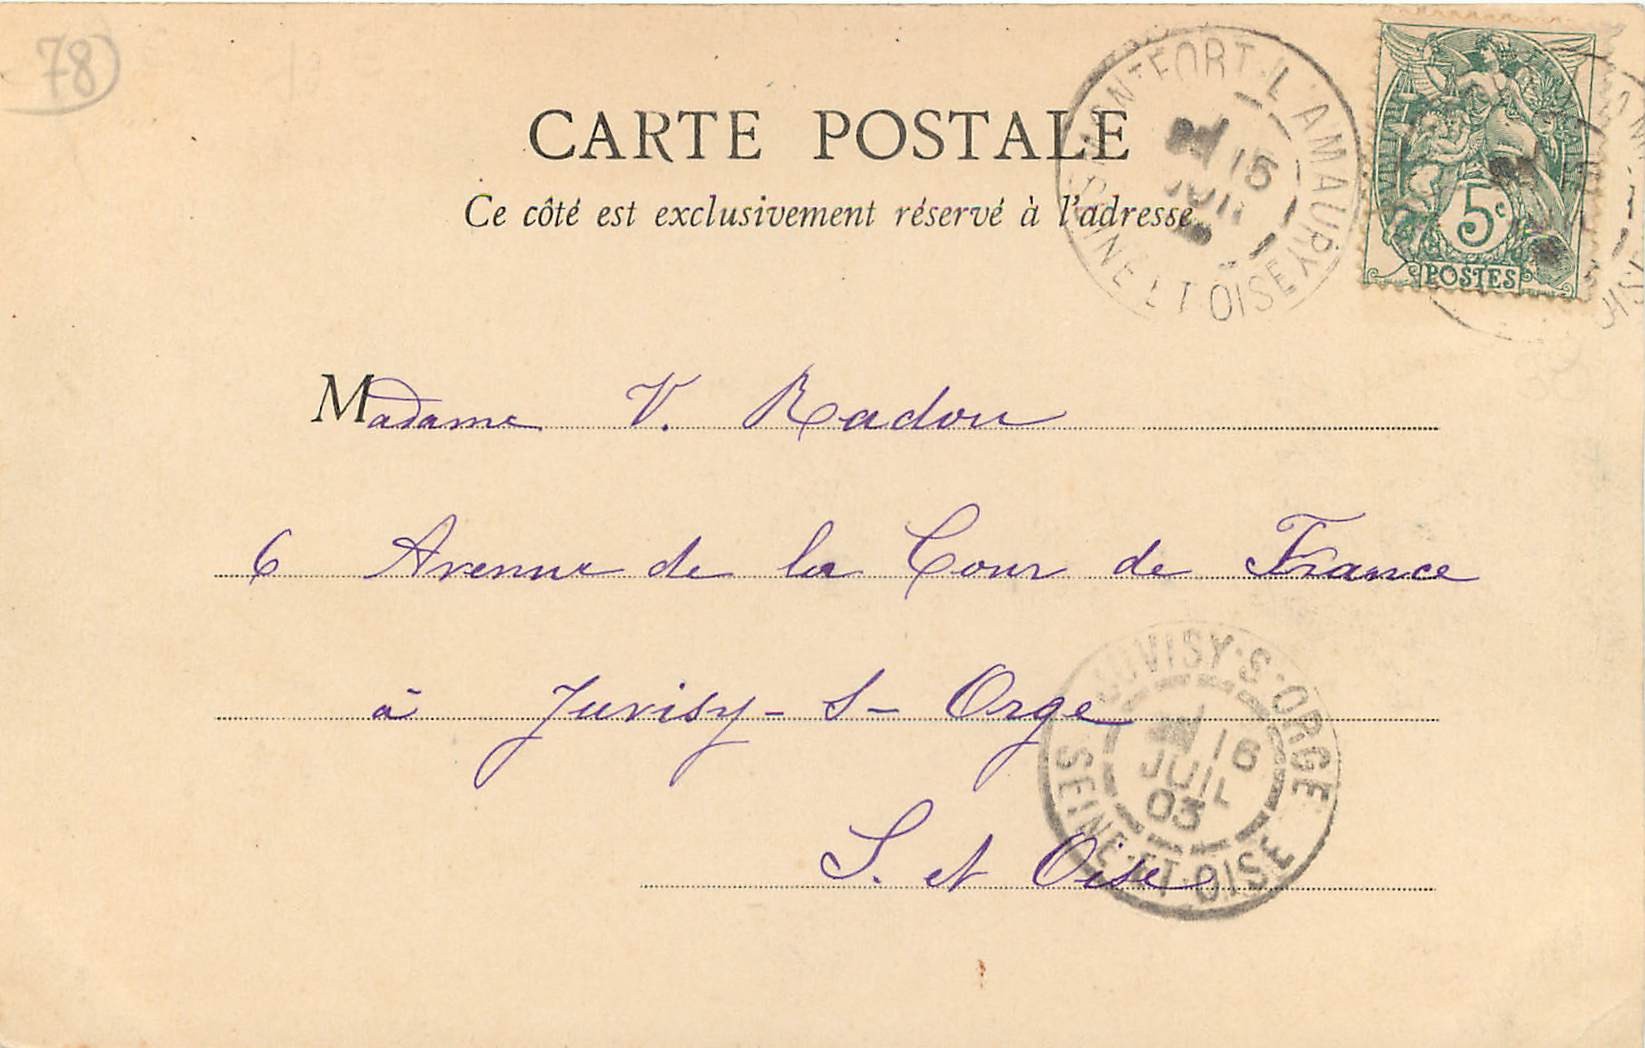 78
CARTE POSTALE
Ce côté est exclusivement réservé à l'adresse
MONTFORT-L'AMAURY
15
JUIL
SEINE ET OISE
5c
POSTES
Madame V. Radou
6 Avenue de la Cour de France
à Juvisy-s-Orge
S. et Oise
JUVISY-S-ORGE
16
JUIL
03
SEINE-ET-OISE